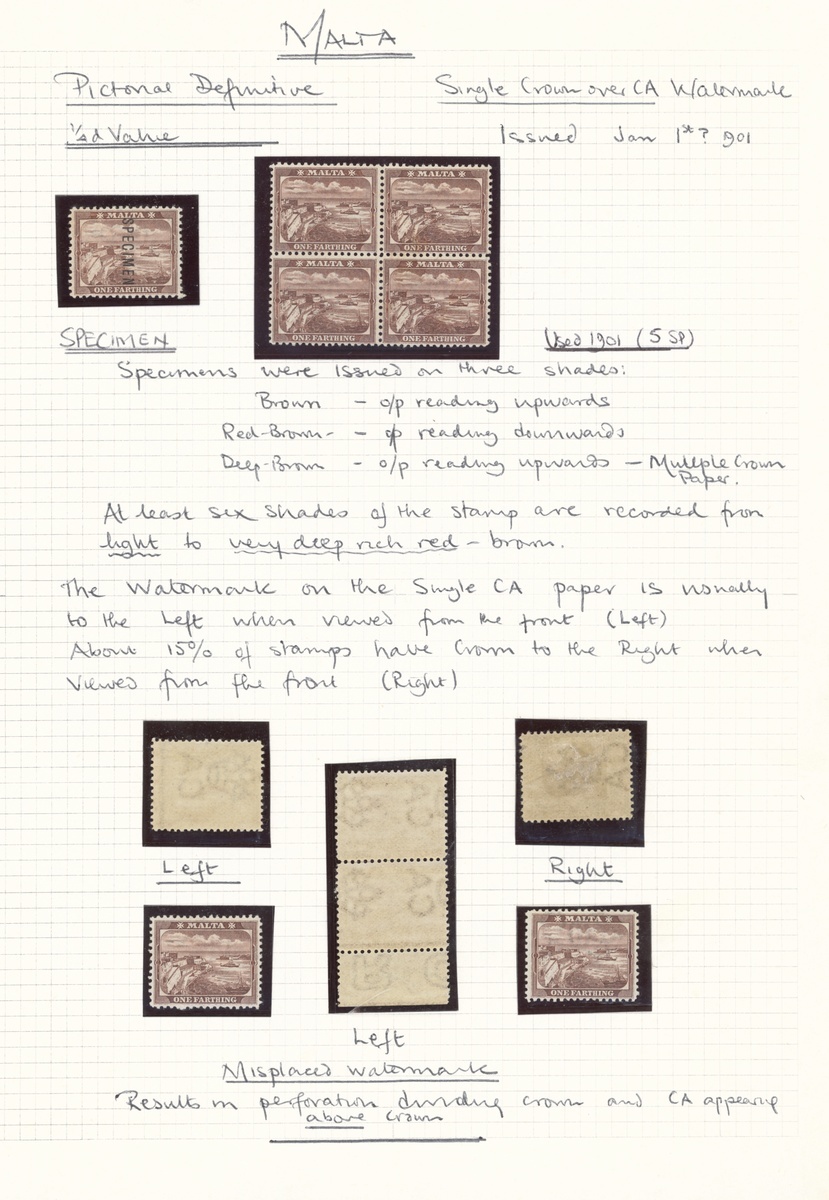 MALTA
Pictorial Definitive
Single Crown over CA Watermark
1/4d Value
Issued Jan 1st? 901
MALTA
SPECIMEN
ONE FARTHING
MALTA
ONE FARTHING
MALTA
ONE FARTHING
MALTA
ONE FARTHING
MALTA
ONE FARTHING
SPECIMEN
Used 1901 (5 SP)
Specimens were issued on three shades:
Brown - o/p reading upwards
Red-Brown - o/p reading downwards
Deep-Brown - o/p reading upwards - Multiple Crown
Paper.
At least six shades of the stamp are recorded from
light to very deep rich red-brown.
The Watermark on the Single CA paper is usually
to the Left when viewed from the front (Left)
About 15% of stamps have Crown to the Right when
viewed from the front (Right)
Left
Right
MALTA
ONE FARTHING
MALTA
ONE FARTHING
Left
Misplaced Watermark
Results in perforation dividing crown and CA appearing
above crown